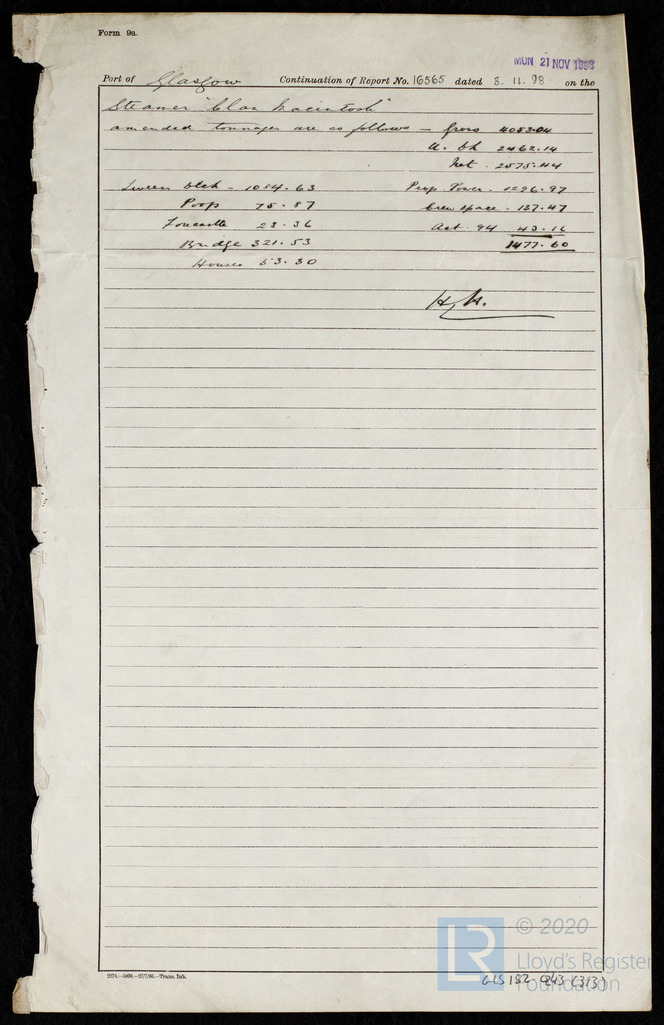 Form 9a.
MUN 21 NOV 1898
Port of Glasgow Continuation of Report No. 16565 dated 3. 11. 98 on the
Steamer "Clan Macintosh"
amended tonnages are as follows — Gross 4053.04
U. Dk 2462.14
Net. 2575.44
Tween Deck - 1084.63 Prop. Power. 1296.97
Poop 75.87 Crew space. 137.47
Forecastle 23.36 Act. 94 43.16
Bridge 321.53 1477.60
Houses 53.30
H.
© 2020
Lloyd's Register
Foundation
GLS 182-0243 (313)